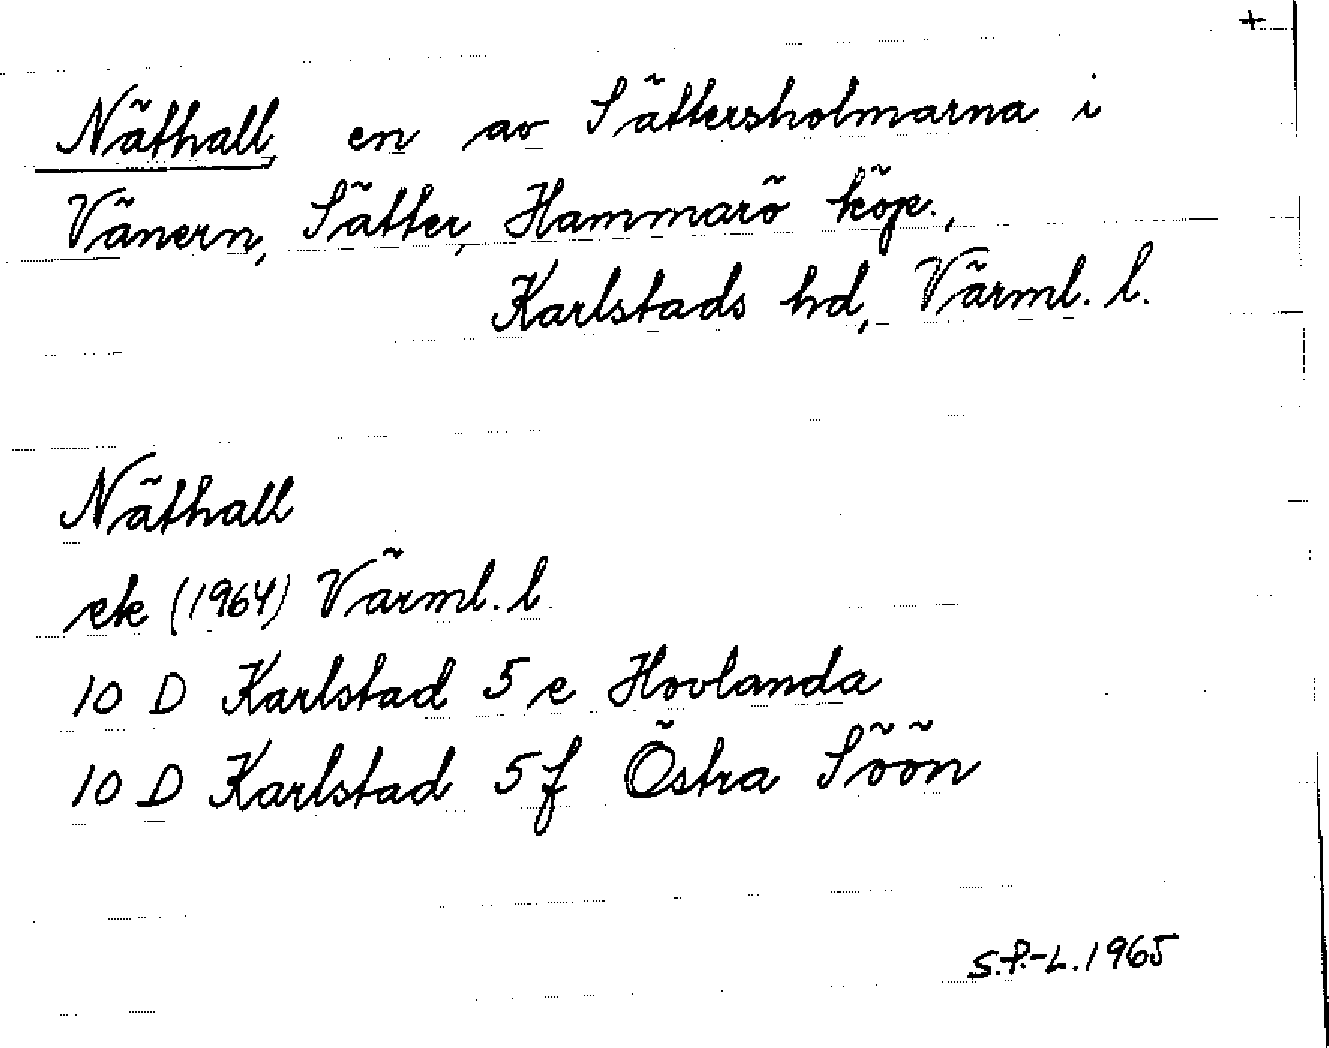 +
Näthall, en av Sättersholmarna i
Vänern, Sätter, Hammarö köp.,
Karlstads hd, Värml. l.
Näthall
ek (1964) Värml. l
10 D Karlstad 5 e Hovlanda
10 D Karlstad 5 f Östra Söön
S.P.-L. 1965